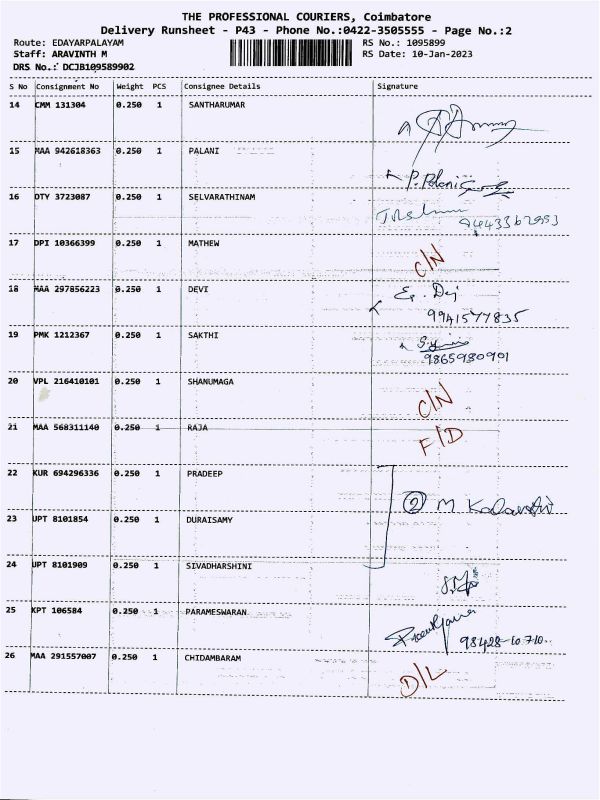 THE PROFESSIONAL COURIERS, Coimbatore
Delivery Runsheet - P43 - Phone No.:0422-3505555 - Page No.:2
Route: EDAYARPALAYAM RS No.: 1095899
Staff: ARAVINTH M RS Date: 10-Jan-2023
DRS No.: DCJB109589902
S No Consignment No Weight PCS Consignee Details Signature
14 CMM 131304 0.250 1 SANTHARUMAR
15 MAA 942618363 0.250 1 PALANI
P. Palani
16 DTY 3723087 0.250 1 SELVARATHINAM
9443362993
17 DPI 10366399 0.250 1 MATHEW
C/N
18 MAA 297856223 0.250 1 DEVI
9941577835
19 PMK 1212367 0.250 1 SAKTHI
9865980901
20 VPL 216410101 0.250 1 SHANUMAGA
C/N
21 MAA 568311140 0.250 1 RAJA
F/D
22 KUR 694296336 0.250 1 PRADEEP
2 M
23 UPT 8101854 0.250 1 DURAISAMY
24 UPT 8101909 0.250 1 SIVADHARSHINI
25 KPT 106584 0.250 1 PARAMESWARAN
98428-10710
26 MAA 291557007 0.250 1 CHIDAMBARAM
D/L